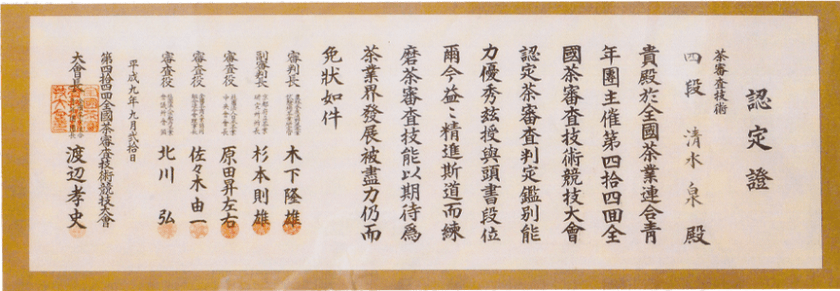 認定證
茶審査技術
四段 清水泉殿
貴殿於全國茶業連合青
年團主催第四拾四回全
國茶審査技術競技大會
認定茶審査判定鑑別能
力優秀茲授與頭書段位
爾今益〻精進斯道而練
磨茶審査技能以期待為
茶業界發展被盡力仍而
免状如件
審判長
木下隆雄
副審判長
杉本則雄
審査役
原田昇左右
審査役
佐々木由一
審査役
北川弘
平成九年九月弐拾日
第四拾四回全國茶審査技術競技大會
大會長
渡辺孝史